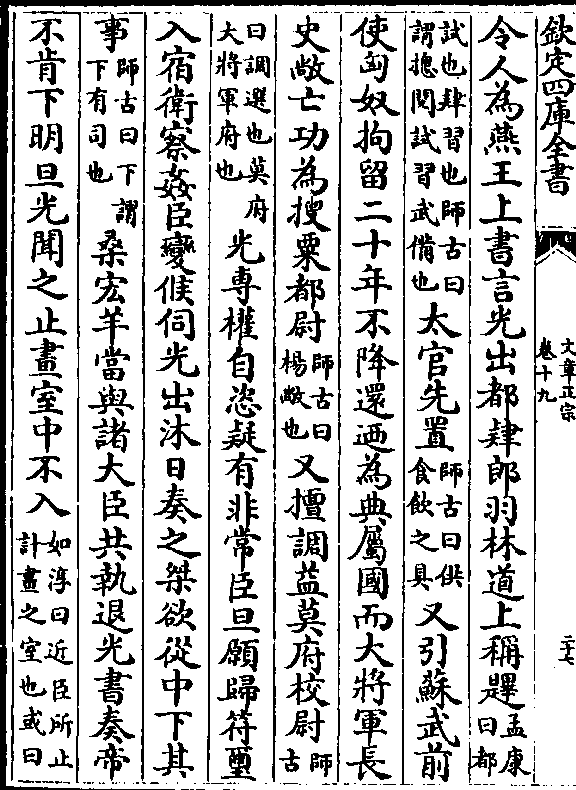 欽定四庫全書
文章正宗
卷十九
二十七
令人為燕王上書言光出都肄郎羽林道上稱䟆孟康曰都
試也肄習也師古曰謂摠閱試習武備也太官先置師古曰供食飲之具又引蘇武前
使匈奴拘留二十年不降還迺為典屬國而大將軍長
史敞亡功為搜粟都尉師古曰楊敞也又擅調益莫府校尉師古
曰調選也莫府大將軍府也光專權自恣疑有非常臣旦願歸符璽
入宿衛察姦臣變候伺光出沐日奏之桀欲從中下其
事師古曰下謂下有司也桑宏羊當與諸大臣共執退光書奏帝
不肯下明旦光聞之止畫室中不入如淳曰近臣所止計畫之室也或曰